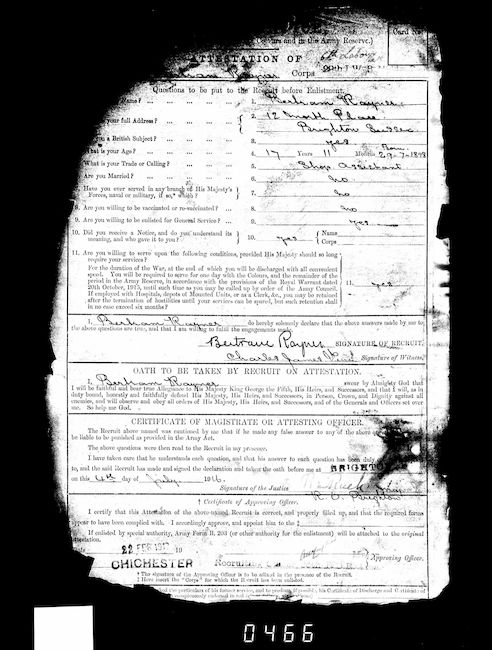 Card No.
Colours and in the Army Reserve.)
ATTESTATION OF
Bertram Rayner Corps
Questions to be put to the Recruit before Enlistment.
Name? ... 1. Bertram Rayner
your full Address? 2. 12 North Place
Brighton Sussex
you a British Subject? ... 3. yes
What is your Age? ... 4. 17 Years 11 Months Born 29-7-1898
What is your Trade or Calling? ... 5. Shop Assistant
Are you Married? ... 6. no
7. Have you ever served in any branch of His Majesty's
Forces, naval or military, if so,* which? 7. no
8. Are you willing to be vaccinated or re-vaccinated? ... 8. no
9. Are you willing to be enlisted for General Service? ... 9. yes
10. Did you receive a Notice, and do you understand its
meaning, and who gave it to you? 10. yes Name
Corps
11. Are you willing to serve upon the following conditions, provided His Majesty should so long
require your services?
For the duration of the War, at the end of which you will be discharged with all convenient
speed. You will be required to serve for one day with the Colours and the remainder of the
period in the Army Reserve, in accordance with the provisions of the Royal Warrant dated
20th October, 1915, until such time as you may be called up by order of the Army Council.
If employed with Hospitals, depots of Mounted Units, or as a Clerk, &c., you may be retained
after the termination of hostilities until your services can be spared, but such retention shall
in no case exceed six months?
11. yes
I, Bertram Rayner do hereby solemnly declare that the above answers made by me to
the above questions are true, and that I am willing to fulfil the engagements made.
Bertram Rayner SIGNATURE OF RECRUIT.
Charles James Signature of Witness.
OATH TO BE TAKEN BY RECRUIT ON ATTESTATION.
I, Bertram Rayner swear by Almighty God that
I will be faithful and bear true Allegiance to His Majesty King George the Fifth, His Heirs, and Successors, and that I will, as in
duty bound, honestly and faithfully defend His Majesty, His Heirs, and Successors, in Person, Crown, and Dignity against all
enemies, and will observe and obey all orders of His Majesty, His Heirs, and Successors, and of the Generals and Officers set over
me. So help me God.
CERTIFICATE OF MAGISTRATE OR ATTESTING OFFICER.
The Recruit above named was cautioned by me that if he made any false answer to any of the above
be liable to be punished as provided in the Army Act.
The above questions were then read to the Recruit in my presence.
I have taken care that he understands each question, and that his answer to each question has been duly
to, and the said Recruit has made and signed the declaration and taken the oath before me at BRIGHTON
on this 4th day of July 1916.
Signature of the Justice
R. O. Brighton
† Certificate of Approving Officer.
I certify that this Attestation of the above-named Recruit is correct, and properly filled up, and that the required forms
appear to have been complied with. I accordingly approve, and appoint him to the ‡
If enlisted by special authority, Army Form B. 203 (or other authority for the enlistment) will be attached to the original
attestation.
22 FEB 1917 19
CHICHESTER
Approving Officer.
† The signature of the Approving Officer is to be affixed in the presence of the Recruit.
‡ Here insert the "Corps" for which the Recruit has been enlisted.
0466